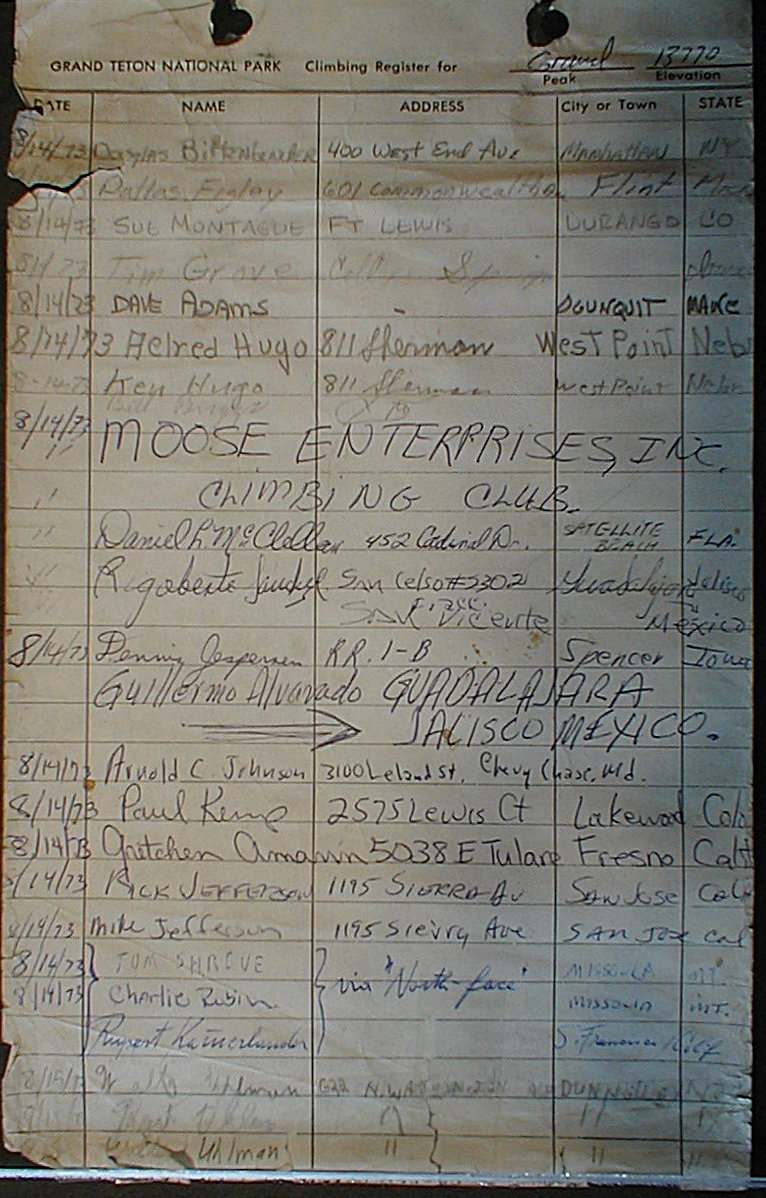 GRAND TETON NATIONAL PARK Climbing Register for Grand 13770
Peak Elevation
DATE NAME ADDRESS City or Town STATE
8/14/73 Douglas 400 West End Ave Manhattan NY
Dallas 601 Flint
8/14/73 SUE MONTAGUE FT LEWIS DURANGO CO
Tim Grove
8/14/73 DAVE ADAMS - OGUNQUIT
8/14/73 Aelred Hugo 811 Sherman West Point Neb
8-14-73 Ken Hugo 811 Sherman West Point Nebr
Bill Briggs
8/14/73 MOOSE ENTERPRISES, INC.
" CLIMBING CLUB.
" Daniel L. McClellan 452 Cardinal Dr. SATELLITE BEACH FLA.
" Rigoberto San Celso #5302 Guadalajara Jalisco
San Vicente Mexico
8/14/73 Denny Jespersen R.R. 1-B Spencer Iowa
Guillermo Alvarado GUADALAJARA
JALISCO MEXICO.
8/14/73 Arnold C. Johnson 3100 Leland St, Chevy Chase, Md.
8/14/73 Paul Kemp 2575 Lewis Ct Lakewood Colo
8/14/73 Gretchen 5038 E Tulare Fresno Calif
8/14/73 RICK JEFFERSON 1195 SIERRA AV SAN JOSE Cal
8/14/73 Mike Jefferson 1195 Sierra Ave SAN JOSE Cal
8/14/73 TOM SHROVE via "North face" MISSOULA MT.
8/14/73 Charlie Rubin MISSOULA MT.
Rupert Kamerlander S. Francisco Calif
622 N. WASHINGTON
" "
Ullman " "